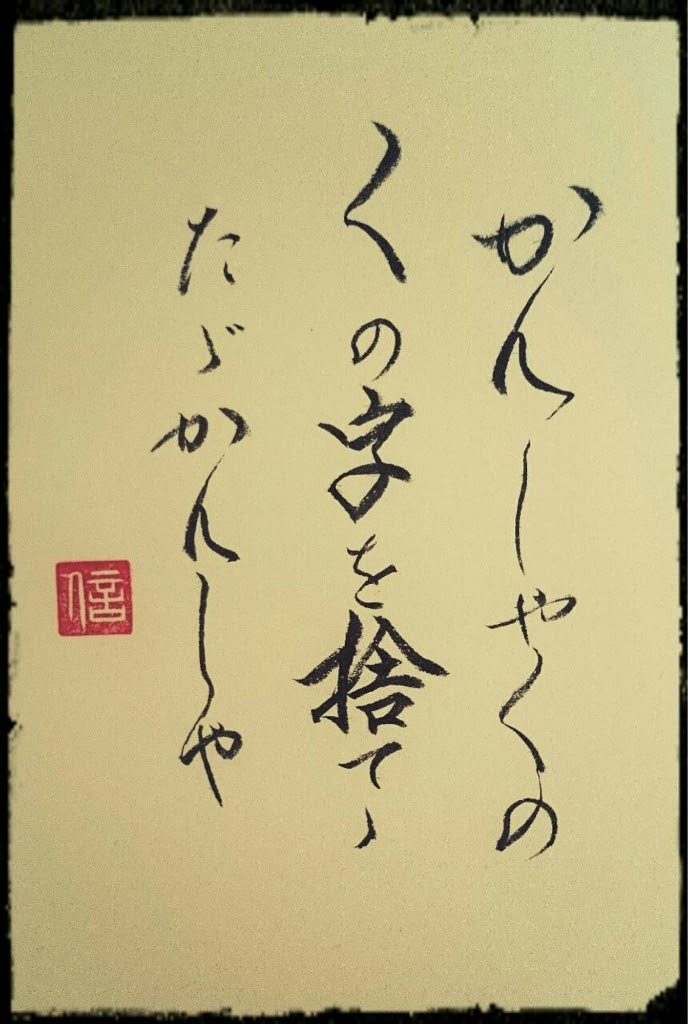 かんしやくの
くの字を捨てゝ
たゞかんしや
信